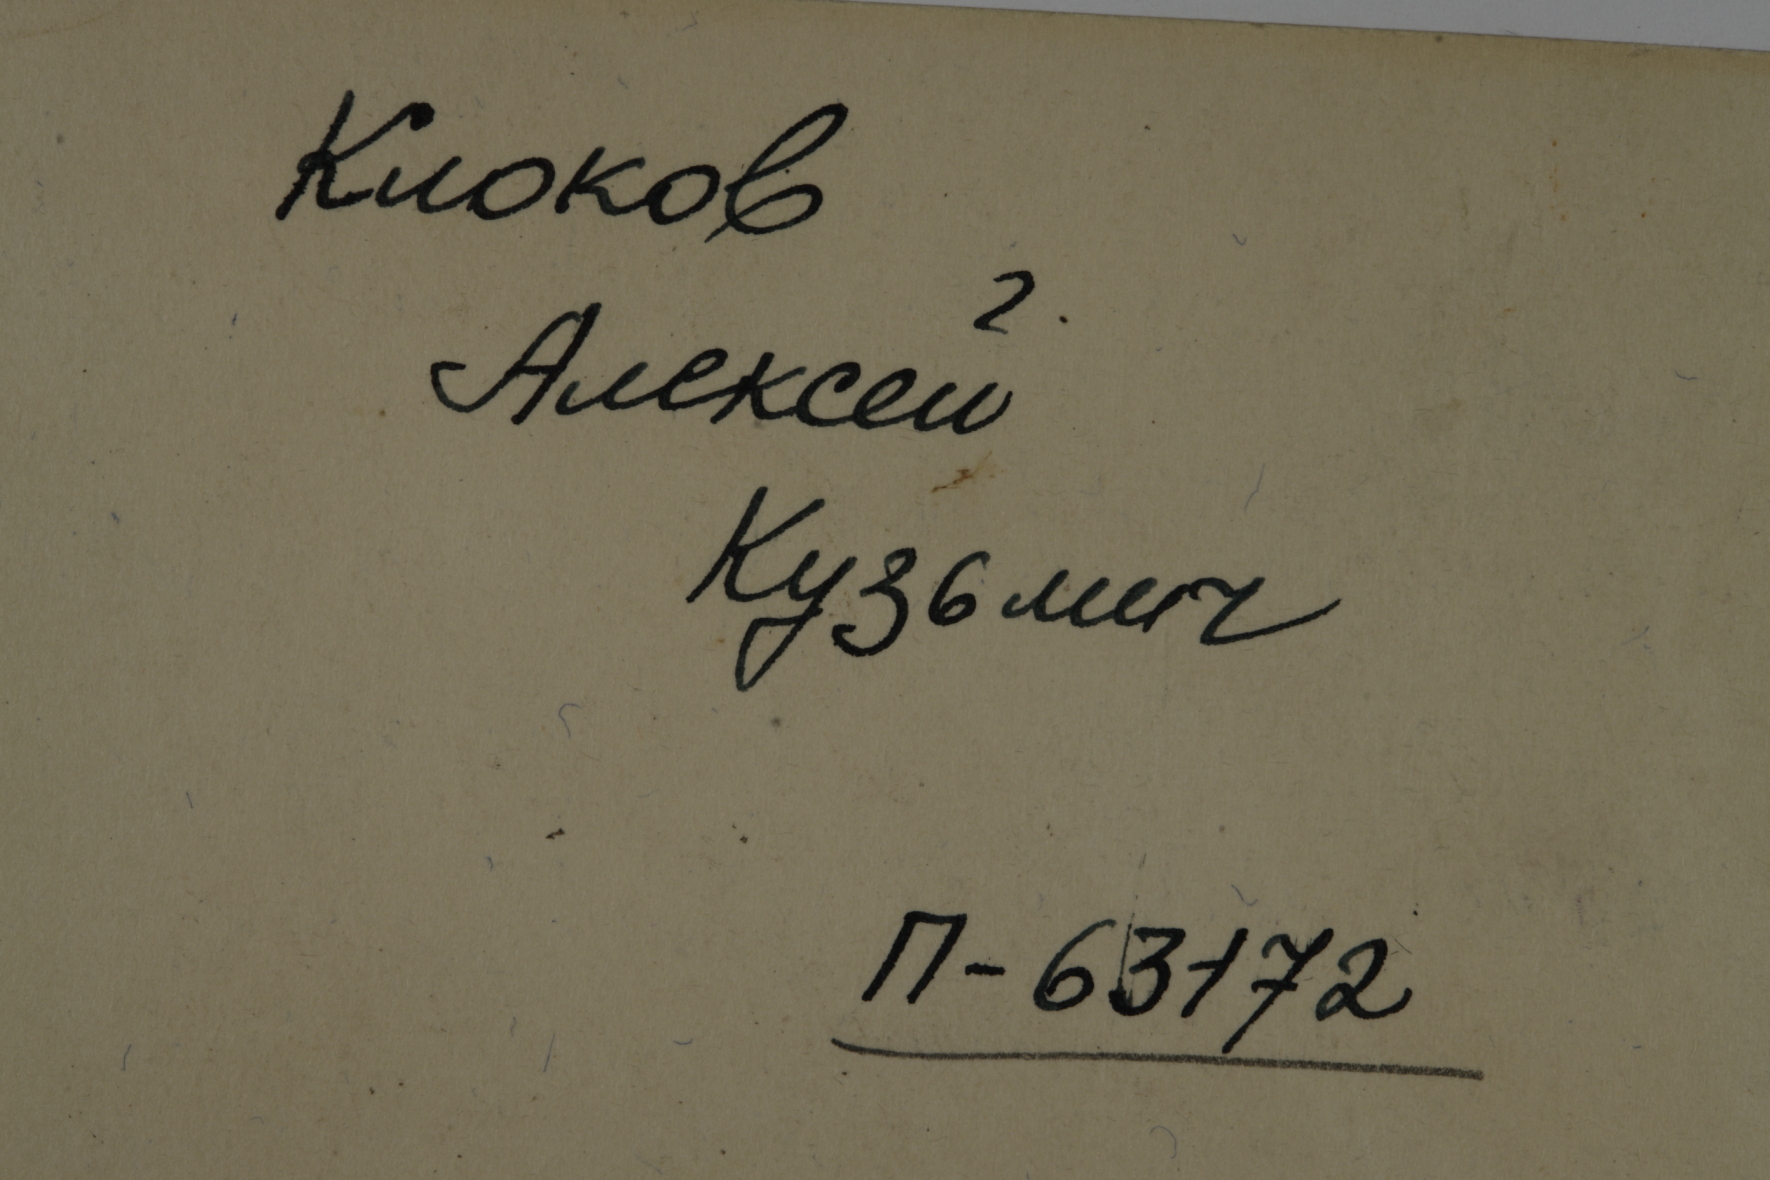 Клоков
г.
Алексей
Кузьмич
П-63172